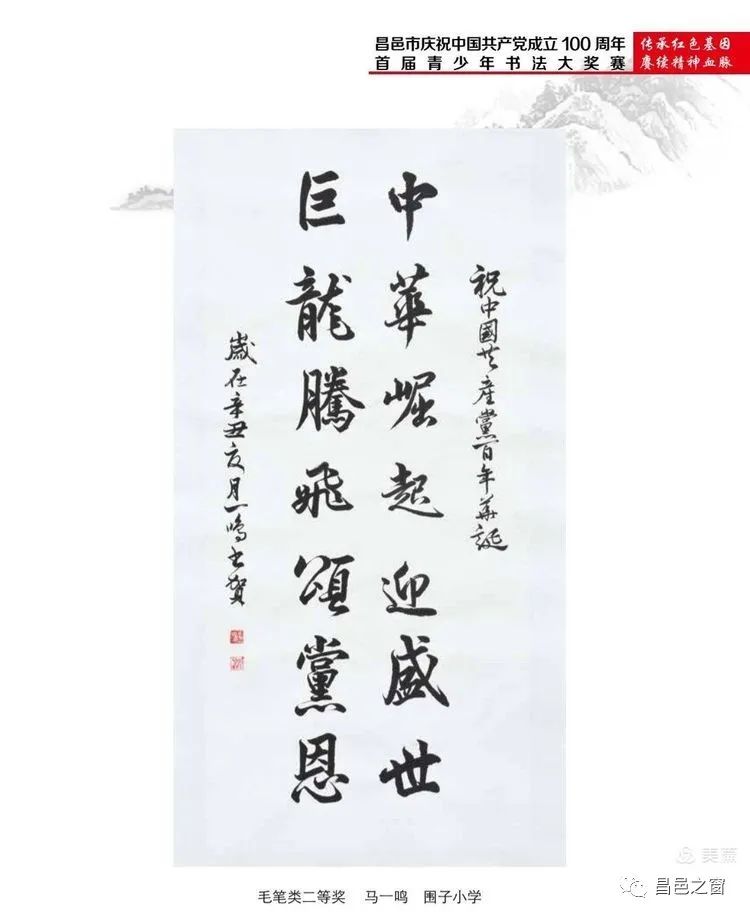 昌邑市庆祝中国共产党成立100周年
首届青少年书法大奖赛
传承红色基因
赓续精神血脉
祝中國共產黨百年華誕
中華崛起迎盛世
巨龍騰飛頌黨恩
歲在辛丑夏月一鳴書賀
美篇
毛笔类二等奖 马一鸣 围子小学
昌邑之窗